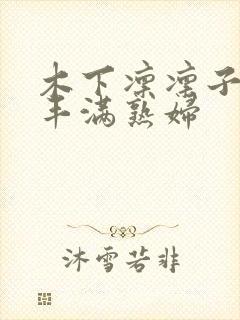 木下凛凛子
丰满熟婦
沐雪若非